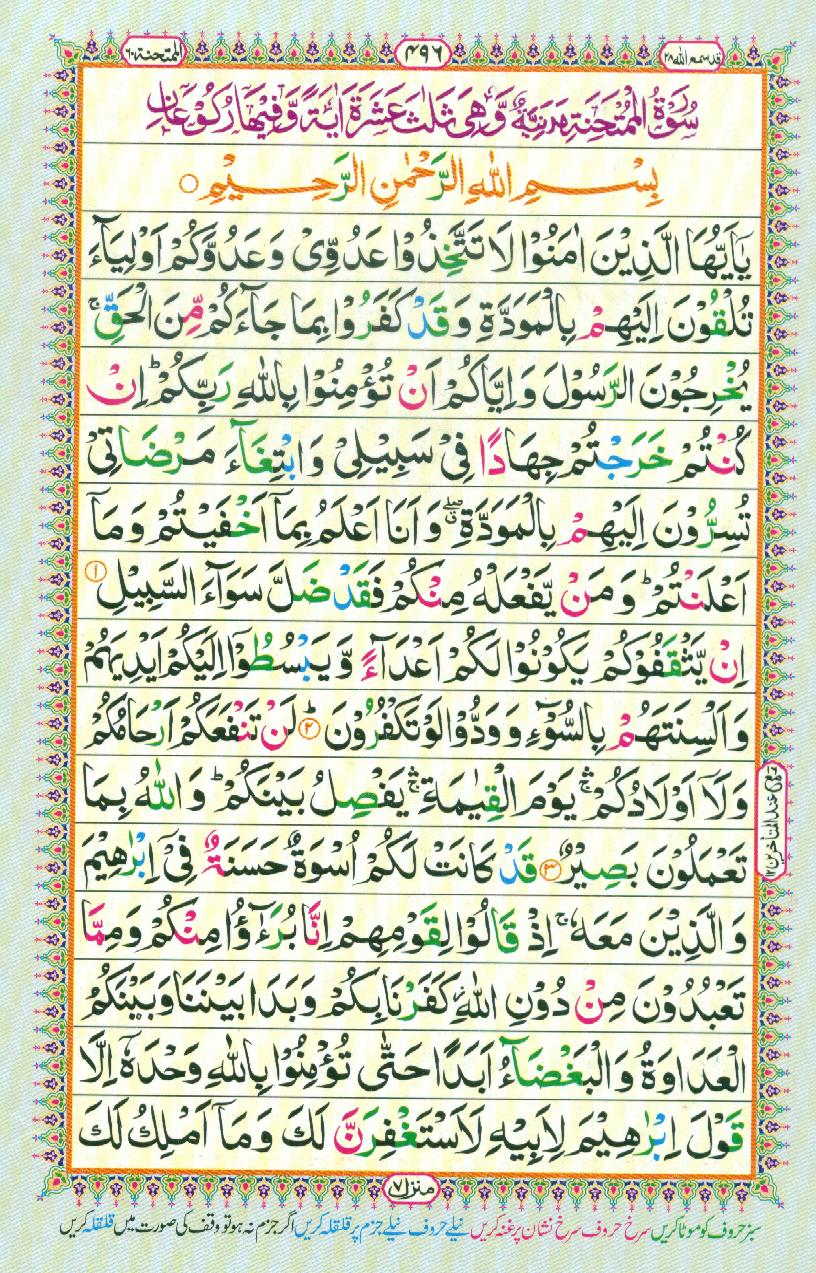 قد سمع الله ٢٨
۴۹۶
الممتحنة ٦٠
سُوْرَةُ الْمُمْتَحِنَةِ مَدَنِيَّةٌ وَّهِیَ ثَلٰثَ عَشْرَةَ اٰیَةً وَّفِیْهَا رُكُوْعَانِ
بِسْمِ اللّٰهِ الرَّحْمٰنِ الرَّحِیْمِ ○
یٰۤاَیُّهَا الَّذِیْنَ اٰمَنُوْا لَا تَتَّخِذُوْا عَدُوِّیْ وَ عَدُوَّكُمْ اَوْلِیَآءَ
تُلْقُوْنَ اِلَیْهِمْ بِالْمَوَدَّةِ وَ قَدْ كَفَرُوْا بِمَا جَآءَكُمْ مِّنَ الْحَقِّ ۚ
یُخْرِجُوْنَ الرَّسُوْلَ وَ اِیَّاكُمْ اَنْ تُؤْمِنُوْا بِاللّٰهِ رَبِّكُمْ ؕ اِنْ
كُنْتُمْ خَرَجْتُمْ جِهَادًا فِیْ سَبِیْلِیْ وَ ابْتِغَآءَ مَرْضَاتِیْ
تُسِرُّوْنَ اِلَیْهِمْ بِالْمَوَدَّةِ ۖۗ وَ اَنَا اَعْلَمُ بِمَاۤ اَخْفَیْتُمْ وَ مَاۤ
اَعْلَنْتُمْ ؕ وَ مَنْ یَّفْعَلْهُ مِنْكُمْ فَقَدْ ضَلَّ سَوَآءَ السَّبِیْلِ ۱
اِنْ یَّثْقَفُوْكُمْ یَكُوْنُوْا لَكُمْ اَعْدَآءً وَّ یَبْسُطُوْۤا اِلَیْكُمْ اَیْدِیَهُمْ
وَ اَلْسِنَتَهُمْ بِالسُّوْٓءِ وَ وَدُّوْا لَوْ تَكْفُرُوْنَ ؕ ۲ لَنْ تَنْفَعَكُمْ اَرْحَامُكُمْ
وَ لَاۤ اَوْلَادُكُمْ ۛۚ یَوْمَ الْقِیٰمَةِ ۛۚ یَفْصِلُ بَیْنَكُمْ ؕ وَ اللّٰهُ بِمَا
تَعْمَلُوْنَ بَصِیْرٌ ۳ قَدْ كَانَتْ لَكُمْ اُسْوَةٌ حَسَنَةٌ فِیْۤ اِبْرٰهِیْمَ
وَ الَّذِیْنَ مَعَهٗ ۚ اِذْ قَالُوْا لِقَوْمِهِمْ اِنَّا بُرَءٰٓؤُا مِنْكُمْ وَ مِمَّا
تَعْبُدُوْنَ مِنْ دُوْنِ اللّٰهِ ؗ كَفَرْنَا بِكُمْ وَ بَدَا بَیْنَنَا وَ بَیْنَكُمُ
الْعَدَاوَةُ وَ الْبَغْضَآءُ اَبَدًا حَتّٰى تُؤْمِنُوْا بِاللّٰهِ وَحْدَهٗۤ اِلَّا
قَوْلَ اِبْرٰهِیْمَ لِاَبِیْهِ لَاَسْتَغْفِرَنَّ لَكَ وَ مَاۤ اَمْلِكُ لَكَ
عند المتاخرین ١٢
منزل ٧
سبز حروف کو موٹا کریں سرخ حروف سرخ نشان پر غنہ کریں نیلے حروف نیلے جزم پر قلقلہ کریں اگر جزم نہ ہو تو وقف کی صورت میں قلقلہ کریں